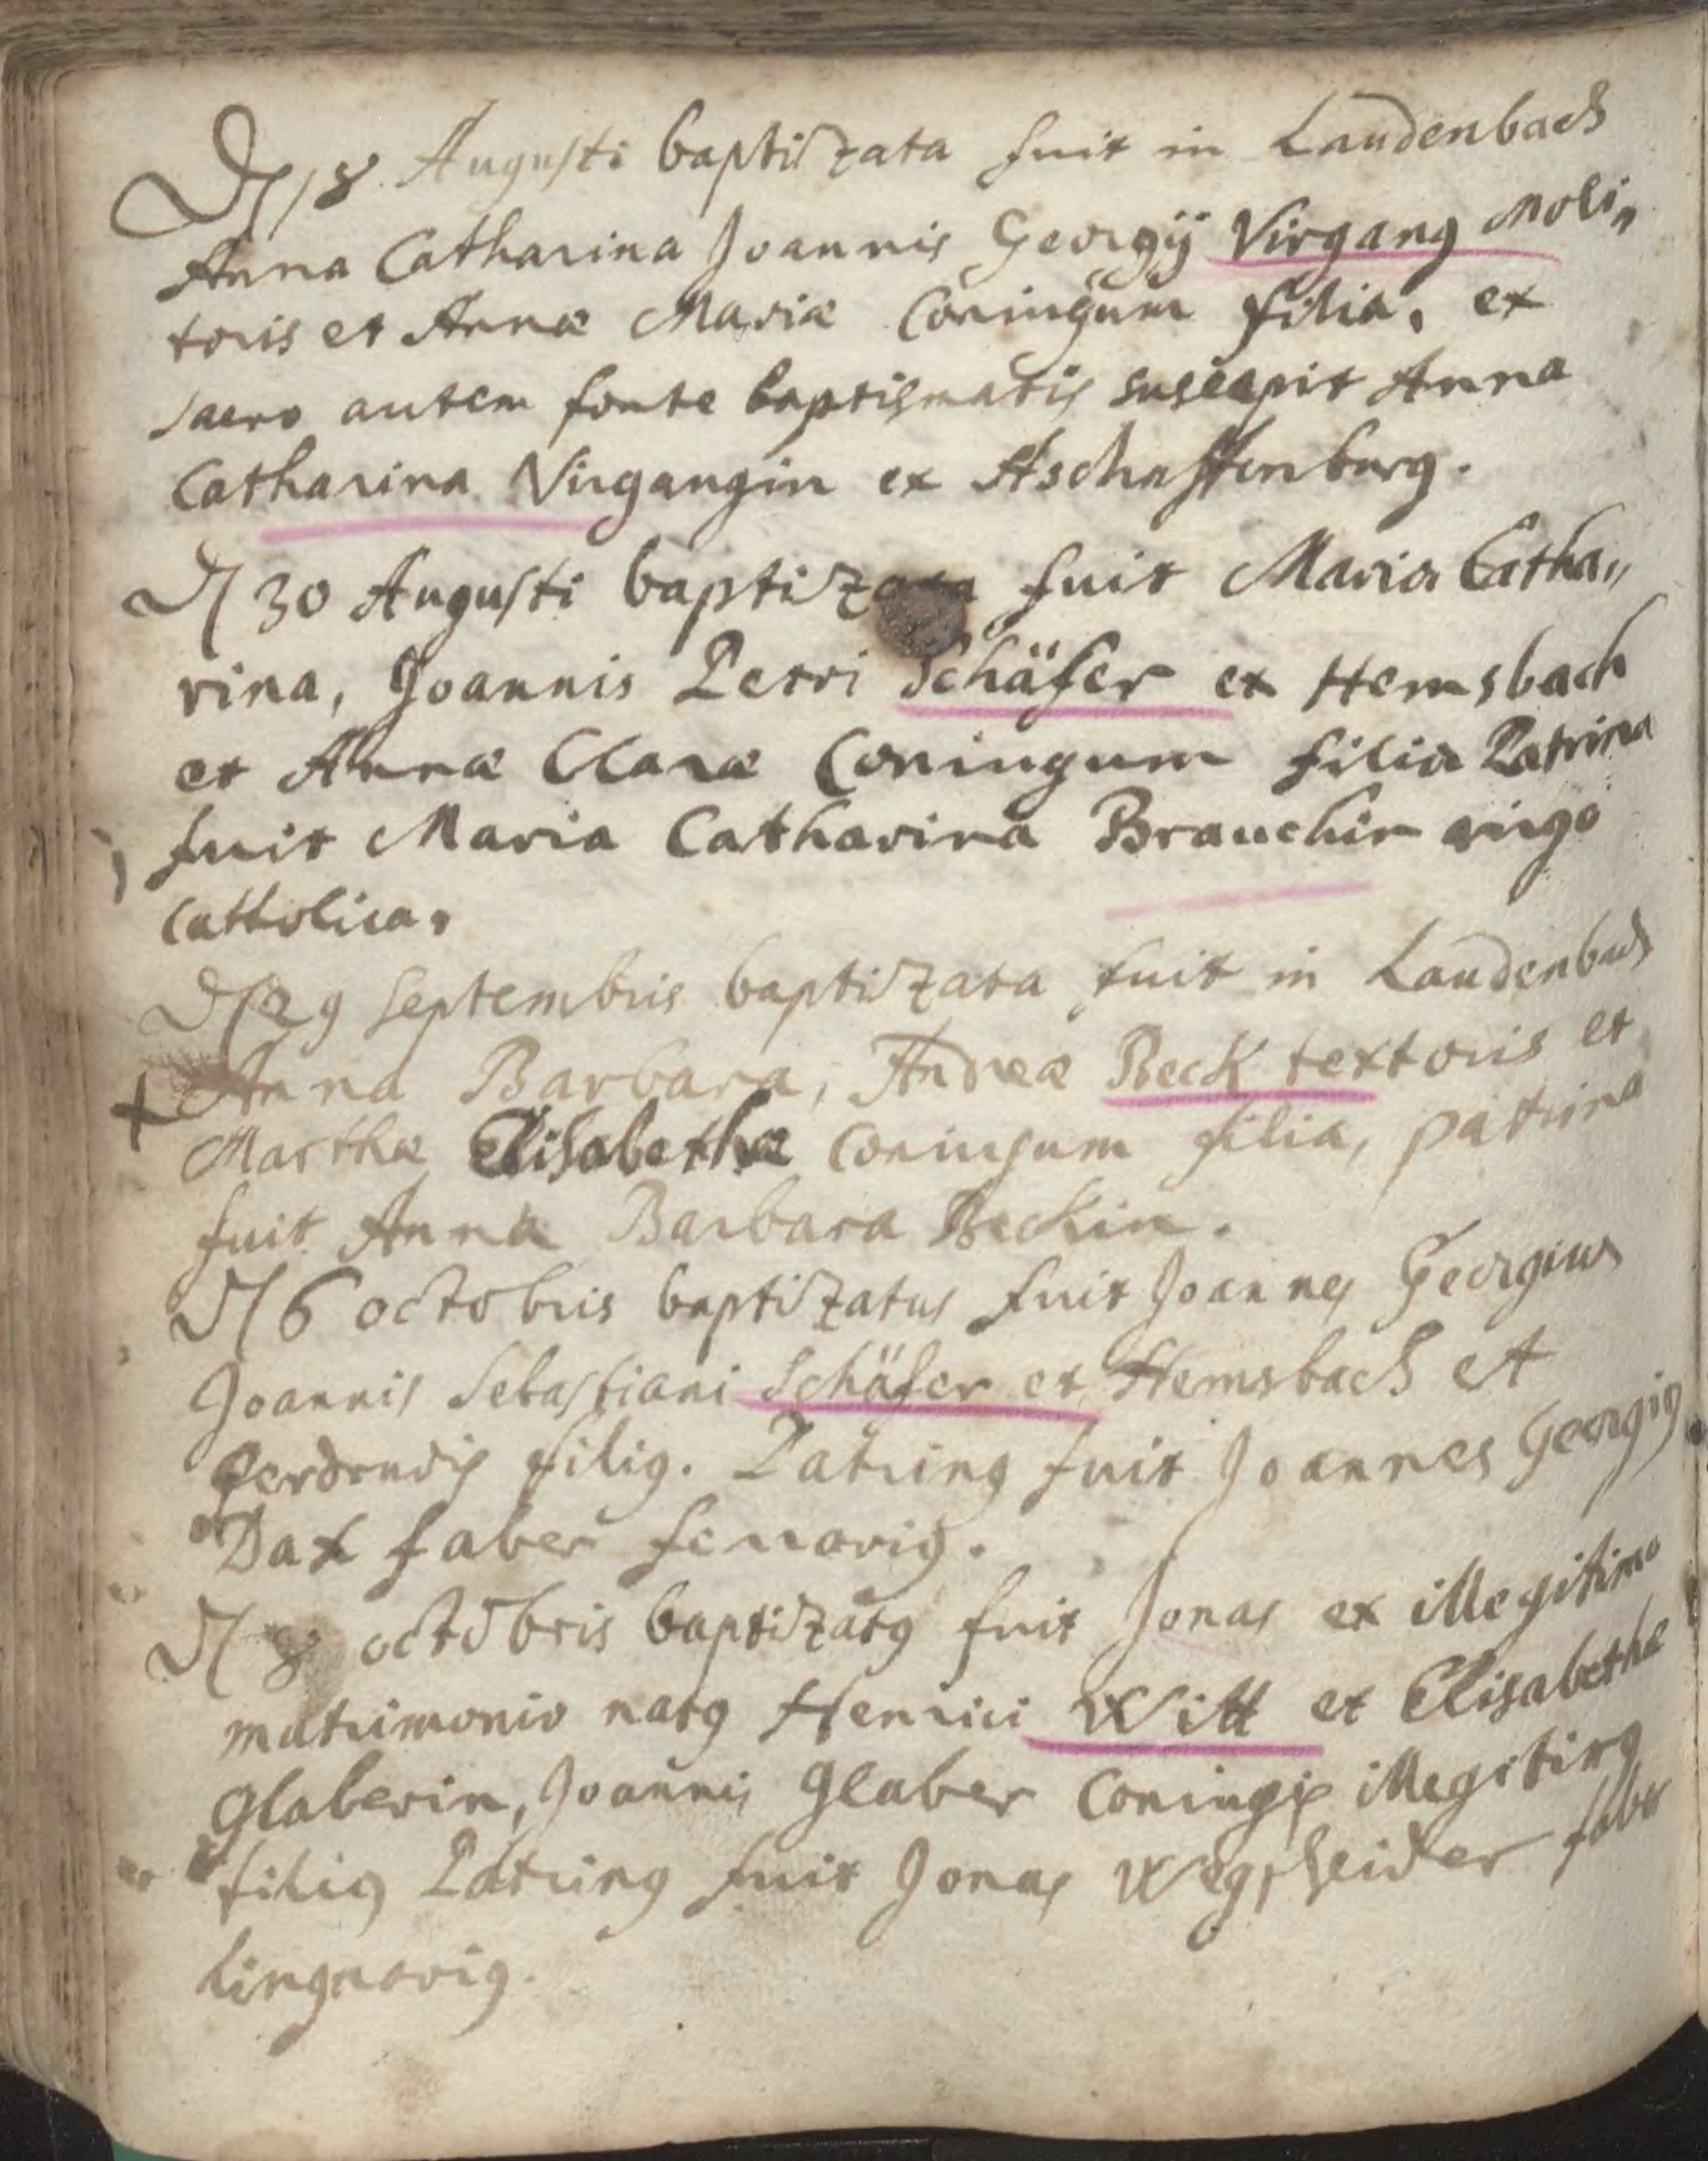 D 18 Augusti baptizata fuit in Laudenbach
Anna Catharina Joannis Georgij Virgang Moli„
toris et Annæ Mariæ Coniugum filia, ex
sacro autem fonte baptismatis suscepit Anna
Catharina Virgangin ex Aschaffenburg.
D 30 Augusti baptizata fuit Maria Catha„
rina, Joannis Petri Schäfer ex Hemsbach
et Annæ Claræ Coniugum filia Patrina
fuit Maria Catharina Brauchin virgo
Catholica.
D 29 Septembris baptizata fuit in Laudenbach
Anna Barbara, Andreæ Beck textoris et
Marthæ Elisabethæ Coniugum filia, patrina
fuit Anna Barbara Beckin.
D 6 octobris baptizatus fuit Joannes Georgius
Joannis Sebastiani Schäfer ex Hemsbach et
filius. Patrinus fuit Joannes Georgius
Dax faber ferrarius.
D 8 octobris baptizatus fuit Jonas ex illegitimo
matrimonio natus Henrici Witt et Elisabethæ
Glaberin, Joannis Glaber Coniugis
filius Patrinus fuit Jonas Wegscheider faber
lignarius.